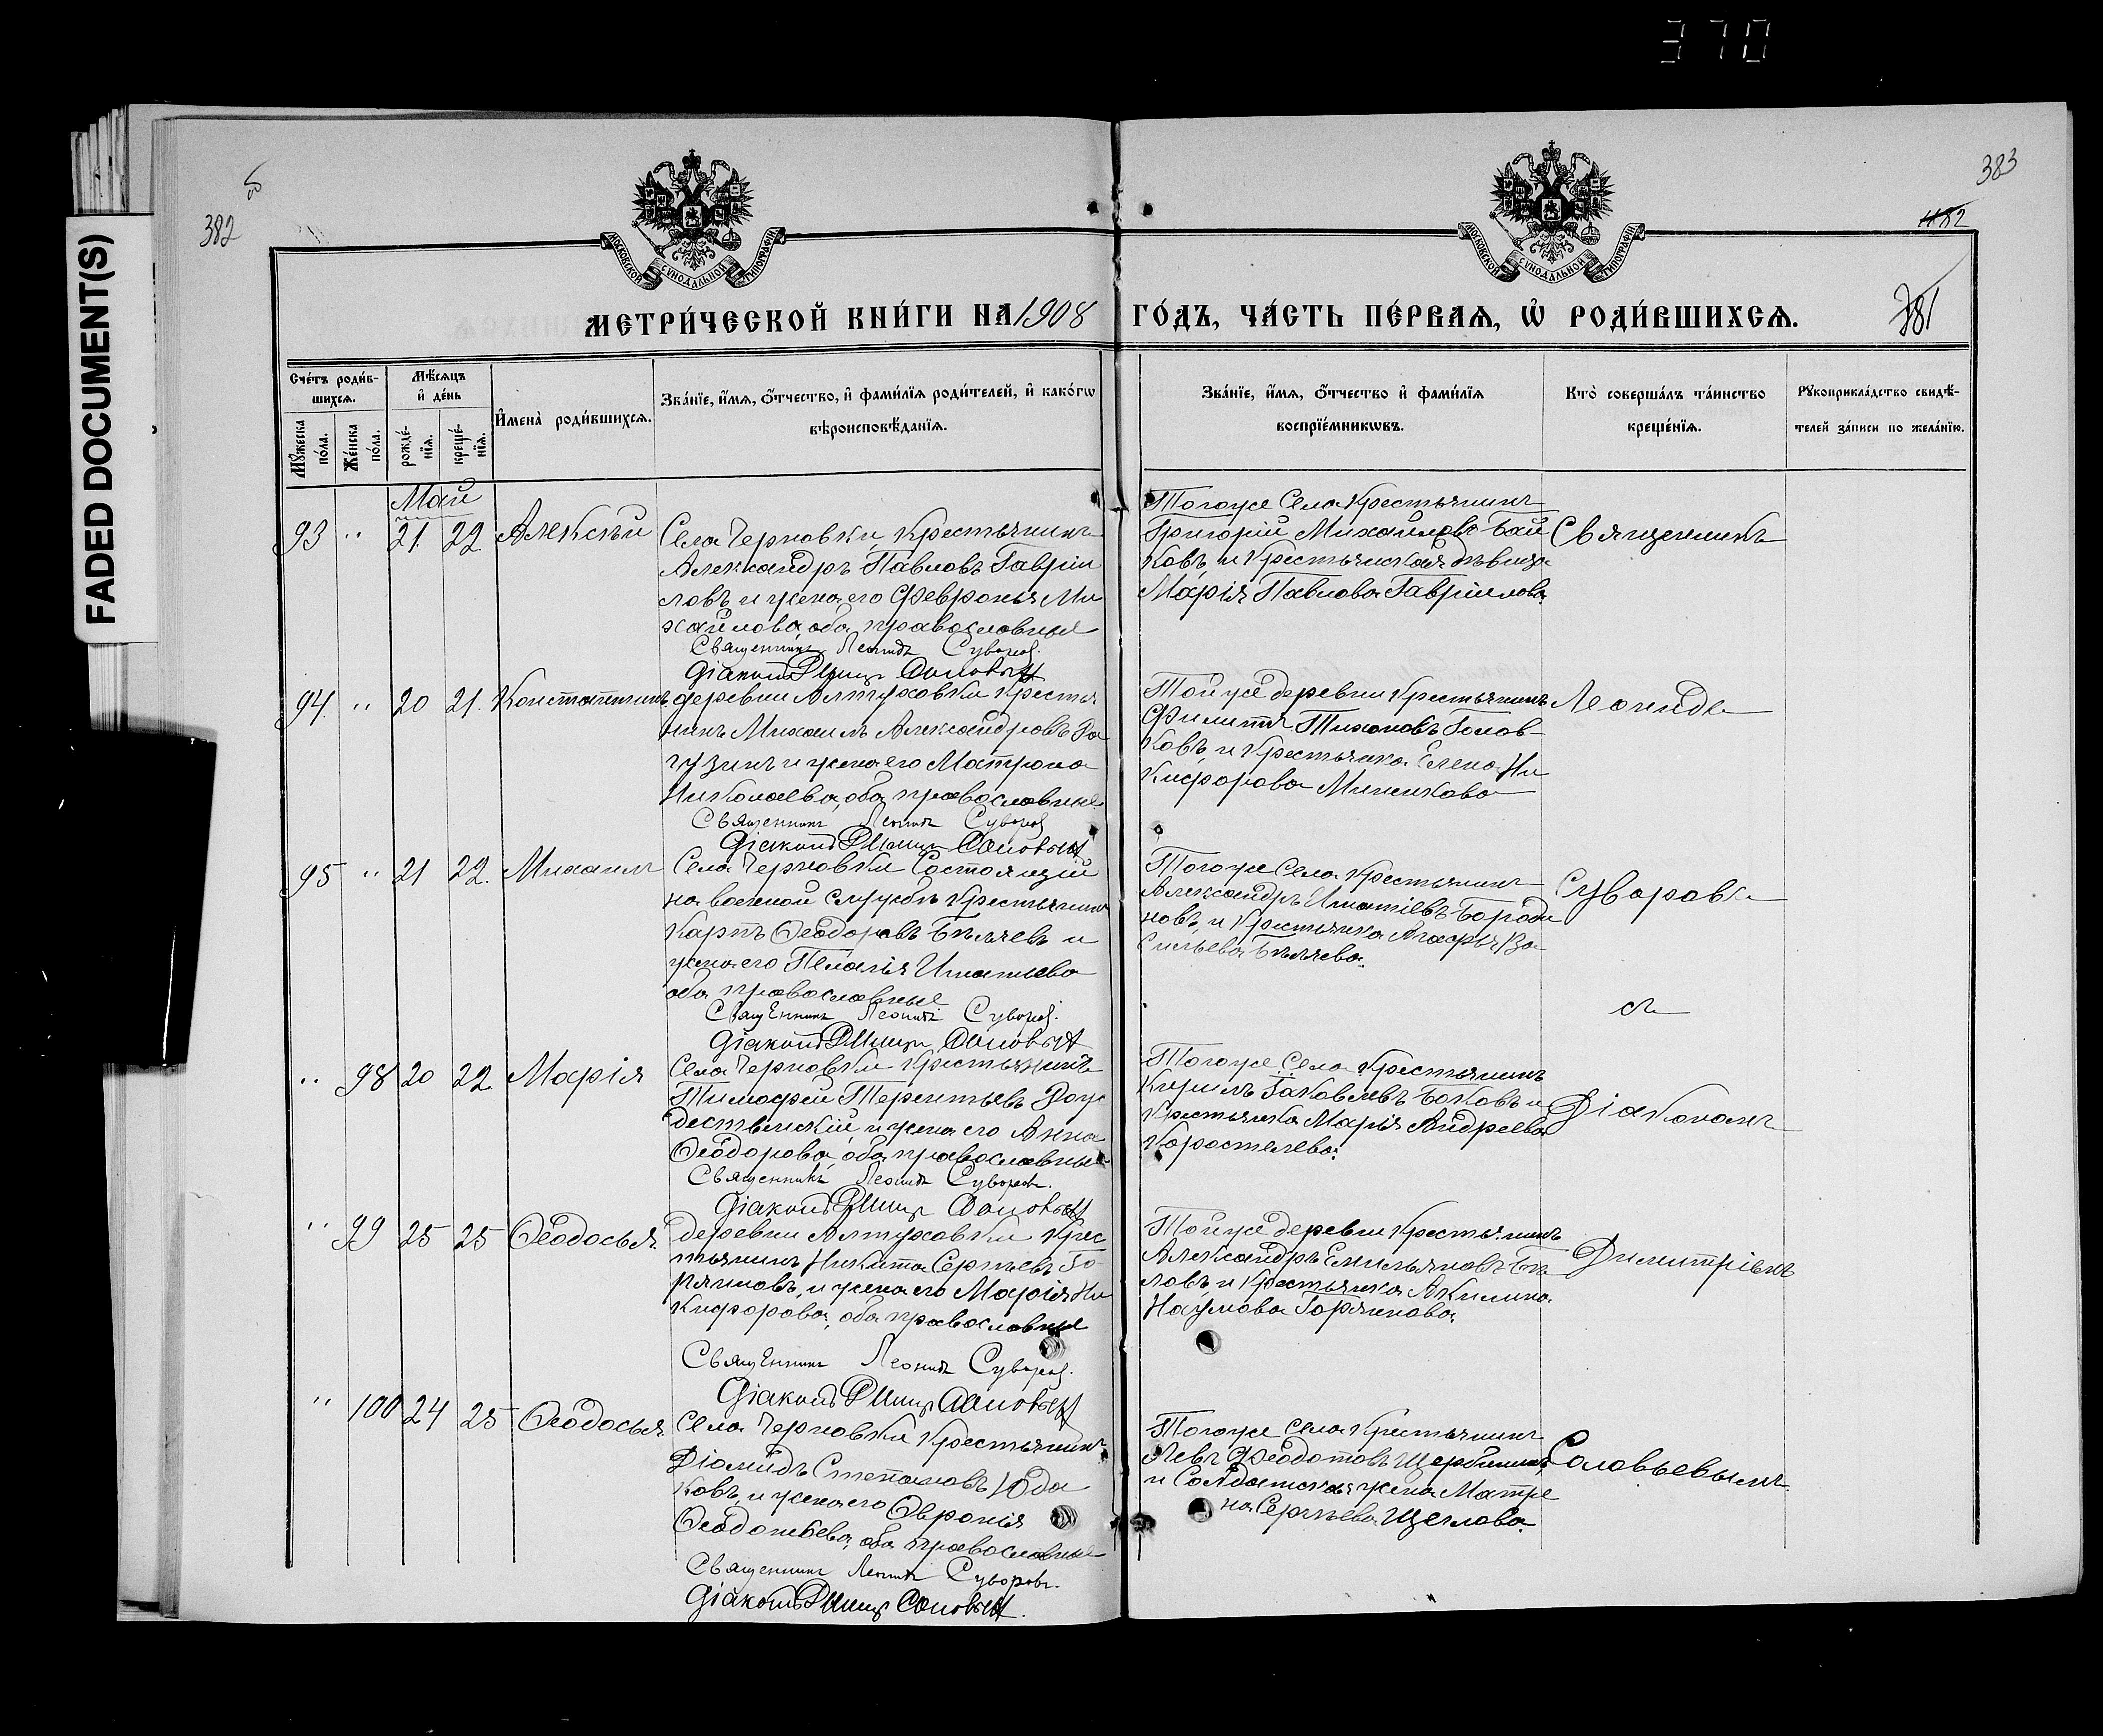 370
FADED DOCUMENT(S)
382
383
482
381
МОСКОВСКОЙ СѴНОДАЛЬНОЙ ТИПОГРАФІИ
МОСКОВСКОЙ СѴНОДАЛЬНОЙ ТИПОГРАФІИ
МЕТРИ́ЧЕСКОЙ КНИ́ГИ НА 1908 ГО́ДЪ, ЧА́СТЬ ПЕ́РВАѦ, Ѡ РОДИ́ВШИХСѦ.
Сче́тъ роди́в-
шихсѧ.
Мѣ́сѧцъ
и҆ де́нь
Мꙋ́жеска
по́ла.
Же́нска
по́ла.
рожде́-
нїѧ.
креще́-
нїѧ.
И҆мена̀ роди́вшихсѧ.
Зва́нїе, и҆́мѧ, ѻ҆́тчество, и҆ фами́лїѧ роди́телей, и҆ како́гѡ
вѣроисповѣ́данїѧ.
Зва́нїе, и҆́мѧ, ѻ҆́тчество и҆ фами́лїѧ
воспрїе́мникѡвъ.
Кто̀ соверша́лъ та́инство
креще́нїѧ.
Рꙋкоприкла́дство свидѣ́-
телей за́писи по жела́нїю.
Май
93 " 21 22 Алексѣй
Села Черновки, крестьянинъ
Александръ Павловъ Гаврии
ловъ и жена его Февронья Ми
хайлова, оба православные
Священникъ Леонидъ Суворовъ.
Діаконъ Димитр Соловьев
Тогоже Села Крестьянинъ
Григорій Михайловъ Бай
ковъ, и Крестьянская дѣвица
Марія Павлова Гавриилова.
Священникъ
94. " 20 21. Константинъ
деревни Алтуховки кресть
нинъ Михаилъ Александровъ Ра
гузинъ и жена его Матрона
Николаева, оба православные
Священникъ Леонидъ Суворовъ
Діаконъ Димитр Соловьев
Тойже деревни Крестьянинъ
Филиппъ Тихоновъ Голов
ковъ, и Крестьянка Елена Ни
кифорова Миникова
Леонидъ
95 " 21 22. Михаилъ
Села Черновки Состоящій
на военной службѣ крестьянинъ
Карпъ Ѳеодоровъ Бѣляевъ и
жена его Пелагія Игнатьева
оба православные
Священникъ Леонидъ Суворовъ.
Діаконъ Димитр Соловьев
Тогоже Села Крестьянинъ
Александръ Игнатіевъ Бороди
новъ, и Крестьянка Агафья Ва
сильева Бѣляева.
Суворовъ
съ
" 98 20 22 Марія
Села Черновки Крестьянинъ
Тимофей Терентьевъ Рож
дественскій, и жена его Анна
Ѳеодорова, оба православные
Священникъ Леонидъ Суворовъ.
Діаконъ Димитр Соловьев
Тогоже Села Крестьянинъ
Кириллъ Іаковлевъ Боковъ и
Крестьянка Марія Андреева
Коростелева.
Діакономъ
" 99 25 25 Ѳеодосья.
деревни Алтуховки Крес
тьянинъ Никита Сергѣевъ Го
ряиновъ, и жена его Марія Ни
кифорова, оба православные
Священникъ Леонидъ Суворовъ.
Діаконъ Димитр Соловьев
Тойже деревни Крестьянинъ
Александръ Емильяновъ Бѣ
ловъ и Крестьянка Акилина
Наумова Горяинова.
Димитріемъ
" 100 24 25 Ѳеодосья
Села Черновки Крестьянинъ
Діомидъ Степановъ Юда
ковъ, и жена его Февронія
оба православные
Священникъ Леонидъ Суворовъ.
Діаконъ Димитр Соловьев.
Тогоже Села Крестьянинъ
Левъ Ѳеодотовъ Щербининъ
и Солдатская жена Матре
на Сергѣева Щеглова.
Соловьевымъ